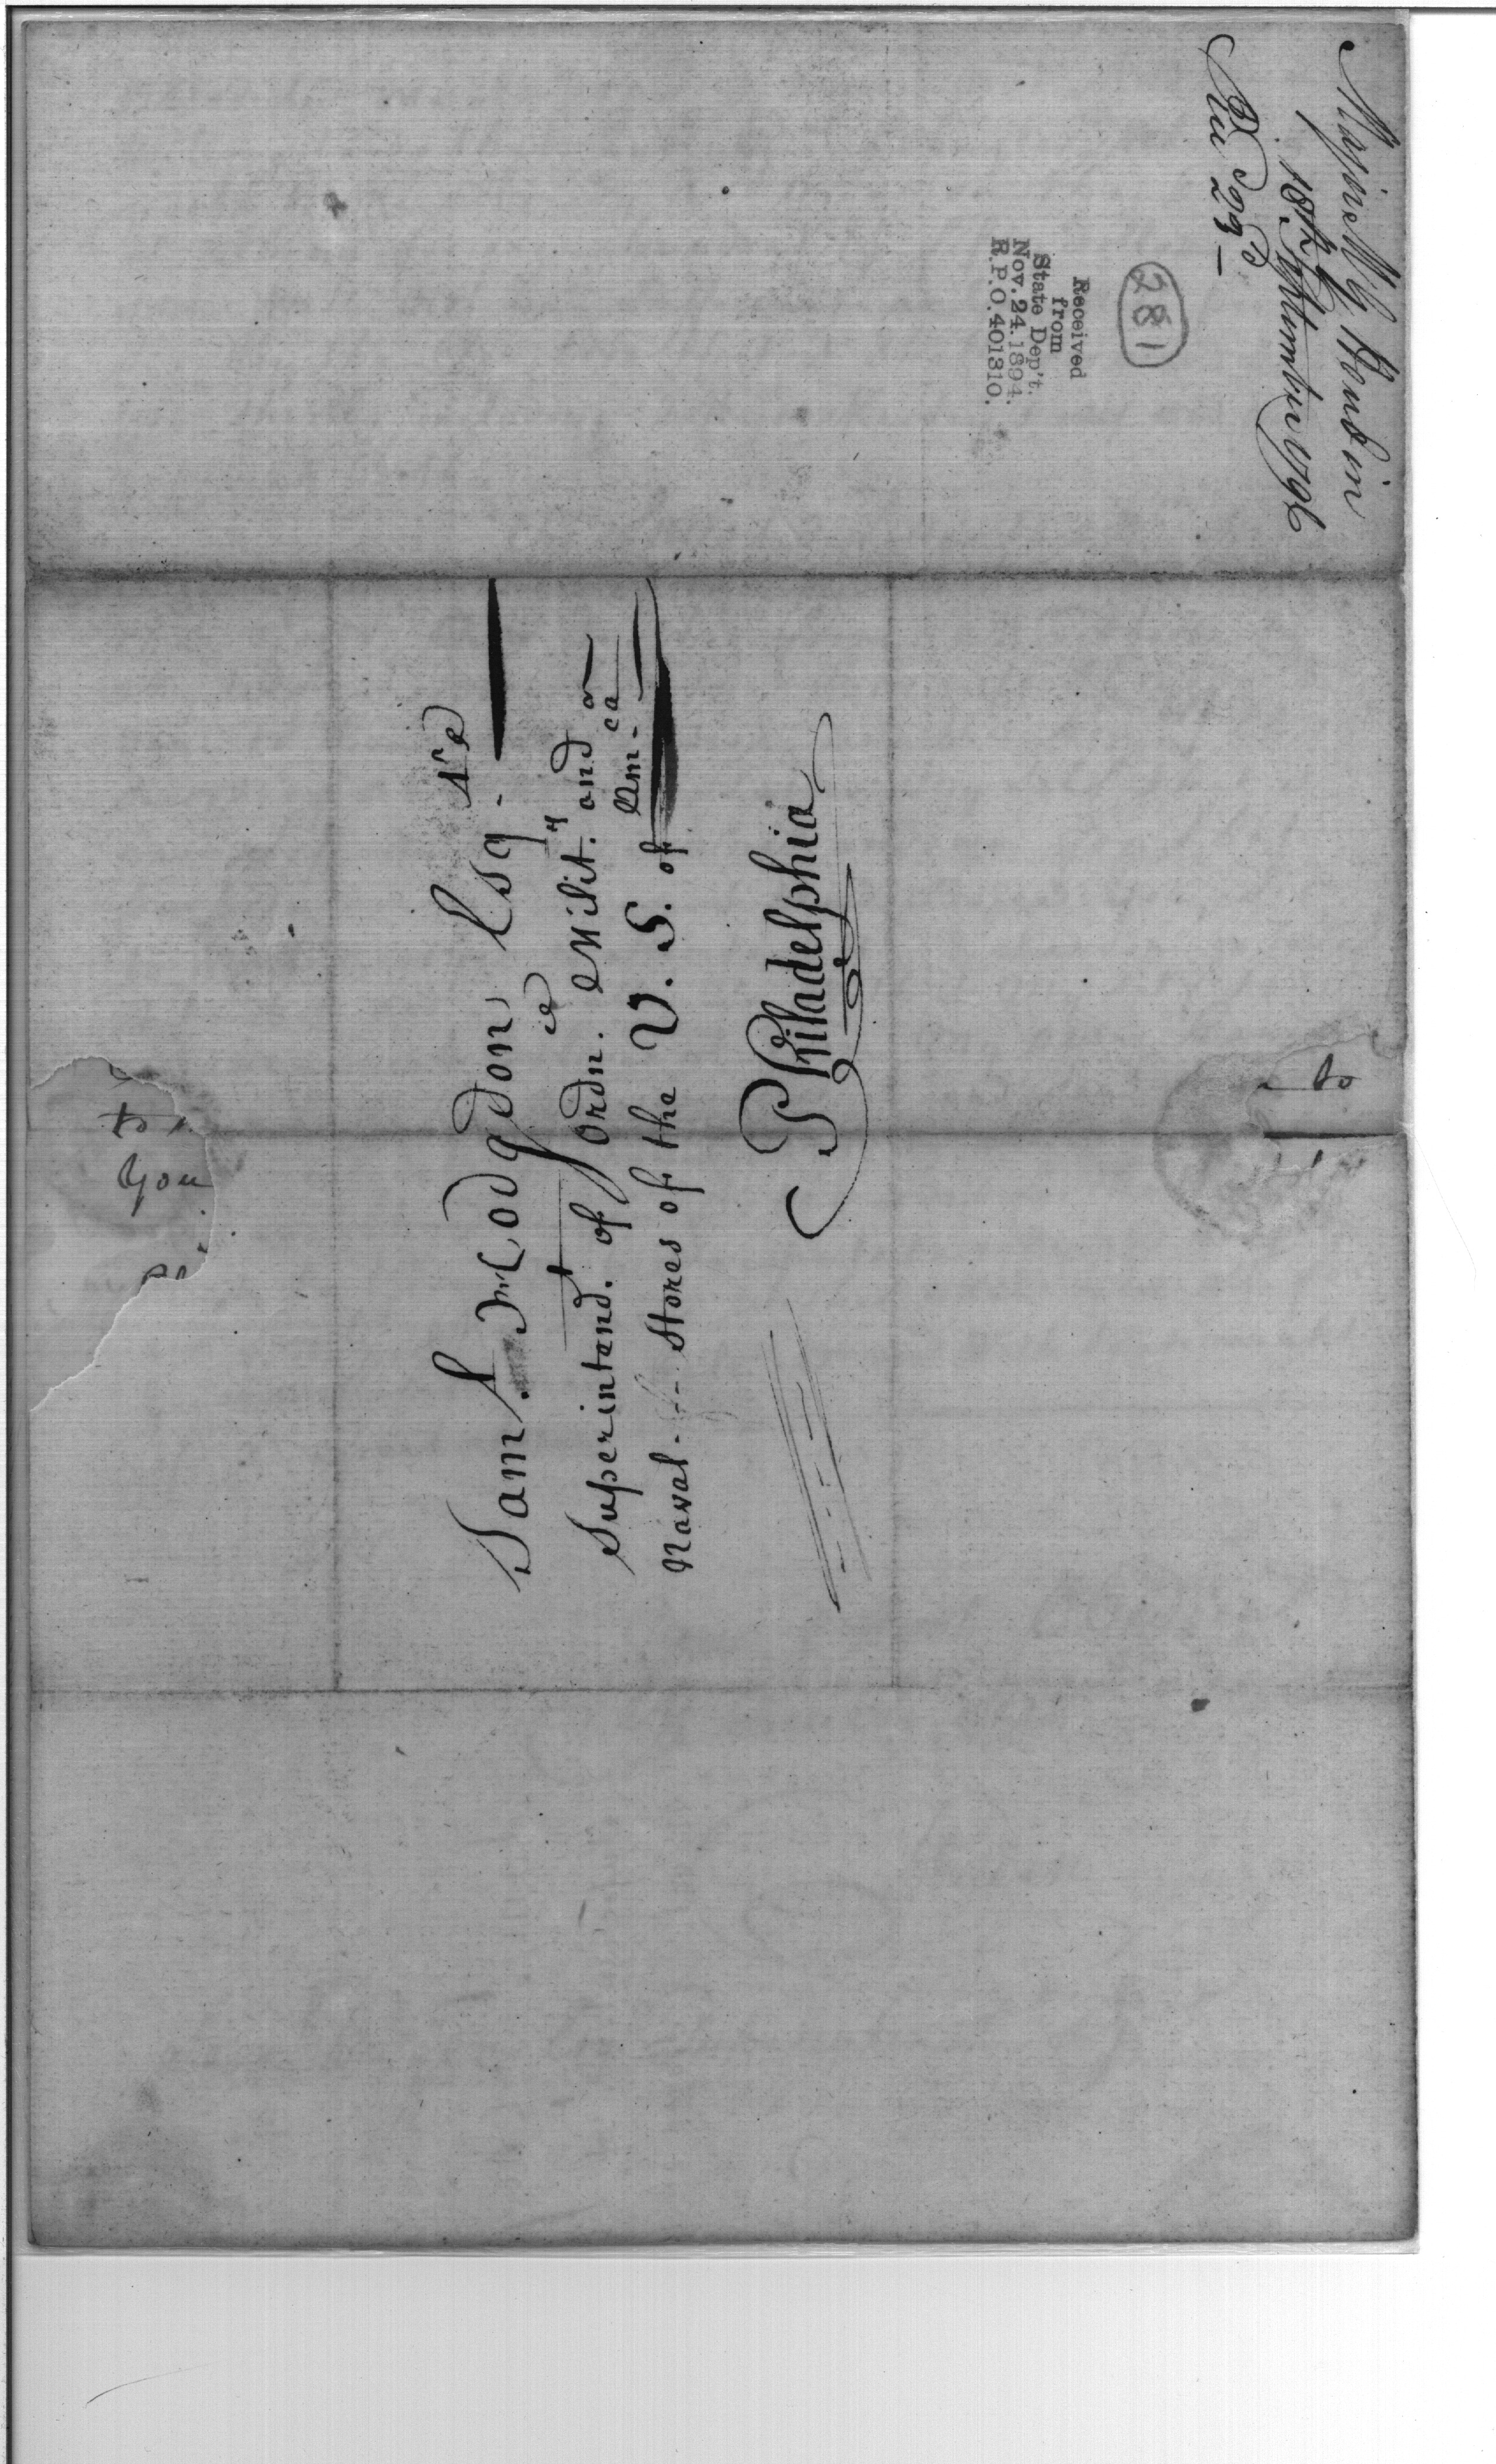 18th September 1796
Rec'd 23d —
281
Received
from
State Dep't.
Nov. 24. 1894.
R.P.O. 401310.
Sam.l Hodgdon Esq.re
Superintend.t of Ordn.ce Milit.y and
Naval - Stores of the U. S. of Am-ca
Philadelphia
to
you
to